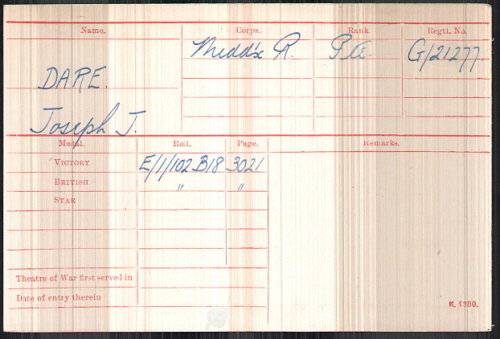 Name. Corps. Rank. Regtl. No.
DARE. Midd'x R. Pte. G/21277
Joseph J.
Medal. Roll. Page. Remarks.
VICTORY E/1/102 B18 3021
BRITISH " "
STAR
Theatre of War first served in
Date of entry therein
K. 1380.